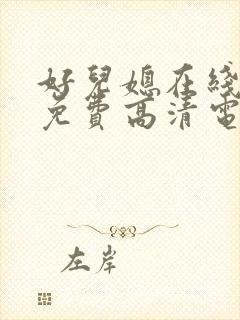 好兒媳在綫
免費高清電
左岸